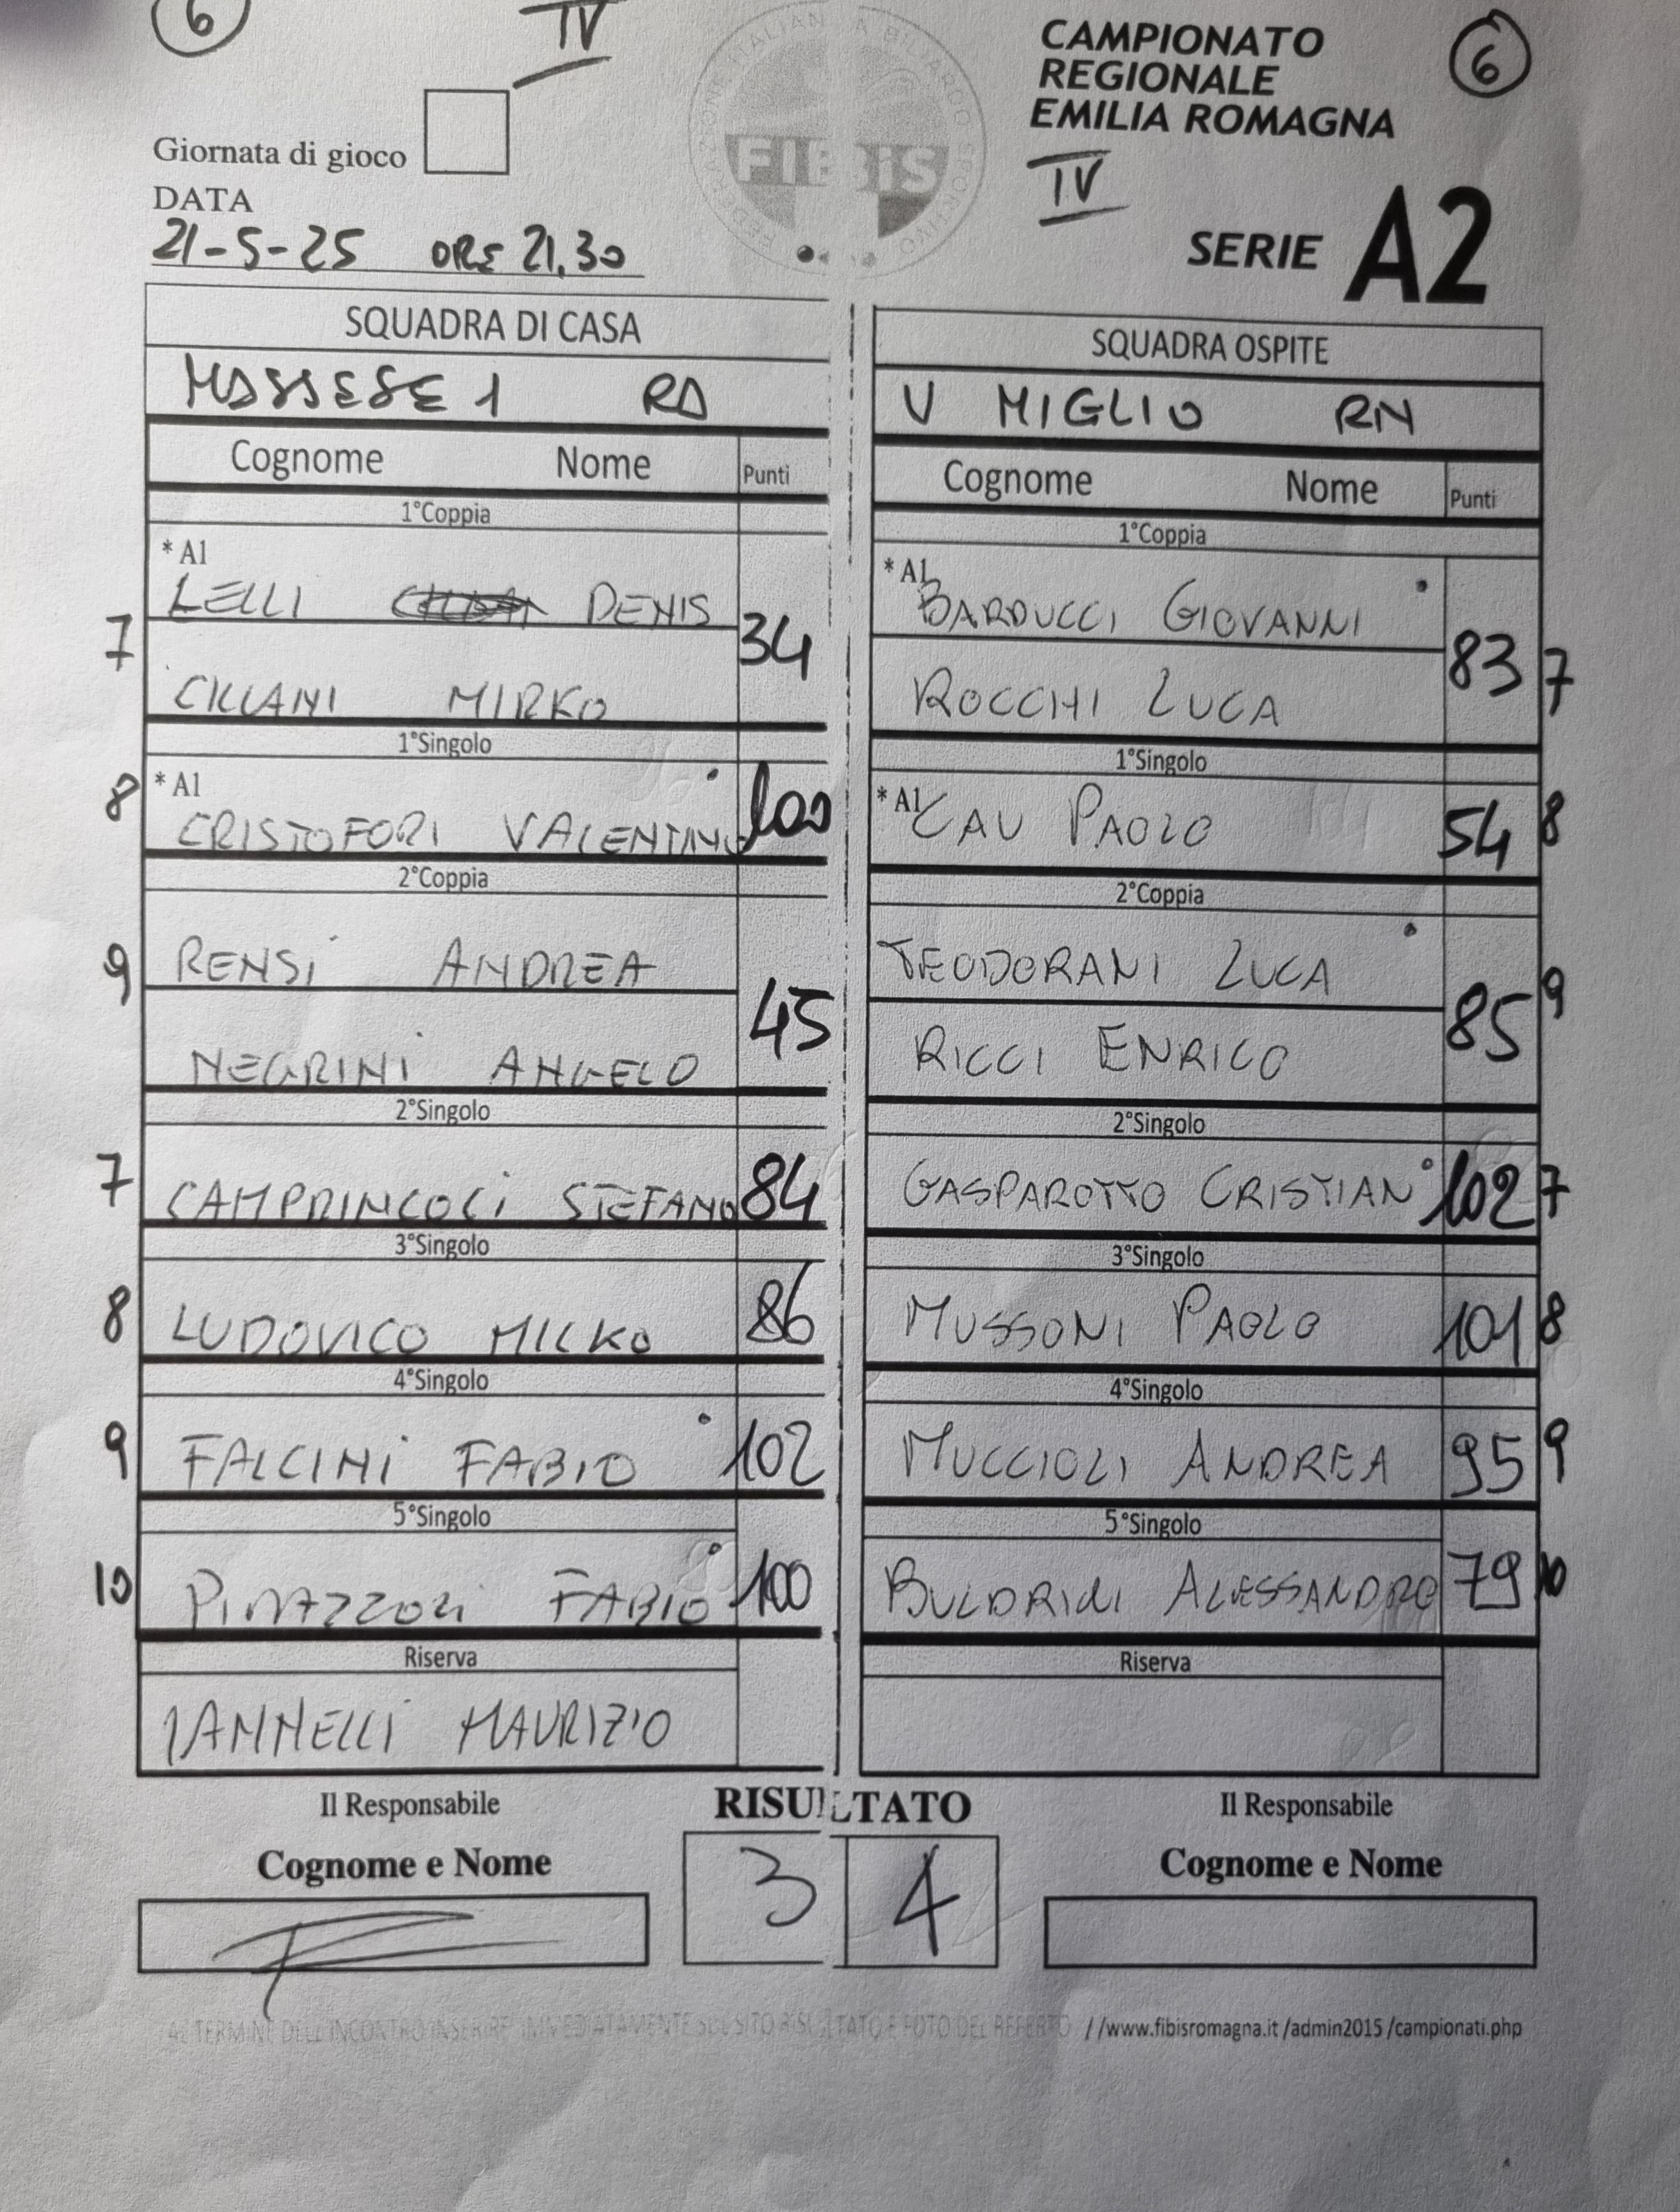 6
IV
FEDERAZIONE ITALIANA BILIARDO SPORTIVO
FIBiS
CAMPIONATO
REGIONALE
EMILIA ROMAGNA
6
IV
SERIE A2
Giornata di gioco
DATA
21-5-25 ORE 21,30
SQUADRA DI CASA
MASSESE 1 RA
Cognome Nome Punti
1°Coppia
* A1
LELLI DENIS
7 34
CILLANI MIRKO
1°Singolo
* A1
8 CRISTOFORI VALENTINO 100
2°Coppia
RENSI ANDREA
9 45
NEGRINI ANGELO
2°Singolo
7 CAMPRINCOLI STEFANO 84
3°Singolo
8 LUDOVICO MILKO 86
4°Singolo
9 FALCINI FABIO 102
5°Singolo
10 FABIO 100
Riserva
IANNELLI MAURIZIO
SQUADRA OSPITE
V MIGLIO RN
Cognome Nome Punti
1°Coppia
* A1
BARDUCCI GIOVANNI
83 7
ROCCHI LUCA
1°Singolo
* A1
CAU PAOLO 54 8
2°Coppia
TEODORANI LUCA
85 9
RICCI ENRICO
2°Singolo
GASPAROTTO CRISTIAN 102 7
3°Singolo
MUSSONI PAOLO 101 8
4°Singolo
MUCCIOLI ANDREA 95 9
5°Singolo
BULDRINI ALESSANDRO 79 10
Riserva
Il Responsabile
Cognome e Nome
RISULTATO
3 4
Il Responsabile
Cognome e Nome
AL TERMINE DELL'INCONTRO INSERIRE IMMEDIATAMENTE SUL SITO RISULTATO E FOTO DEL REFERTO //www.fibisromagna.it /admin2015 /campionati.php